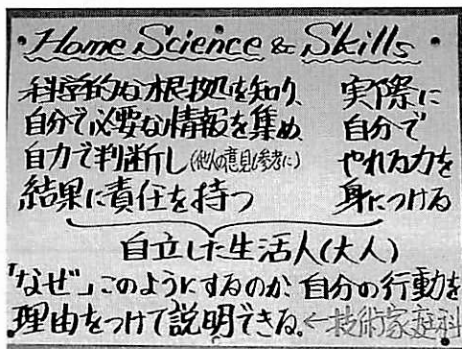 ・Home Science & Skills・
科学的な根拠を知り、
自分で必要な情報を集め、
自力で判断し(他人の意見も参考に)
結果に責任を持つ
実際に
自分で
やれる力を
身につける
自立した生活人(大人)
「なぜ」このようにするのか、自分の行動を
理由をつけて説明できる。←技術家庭科